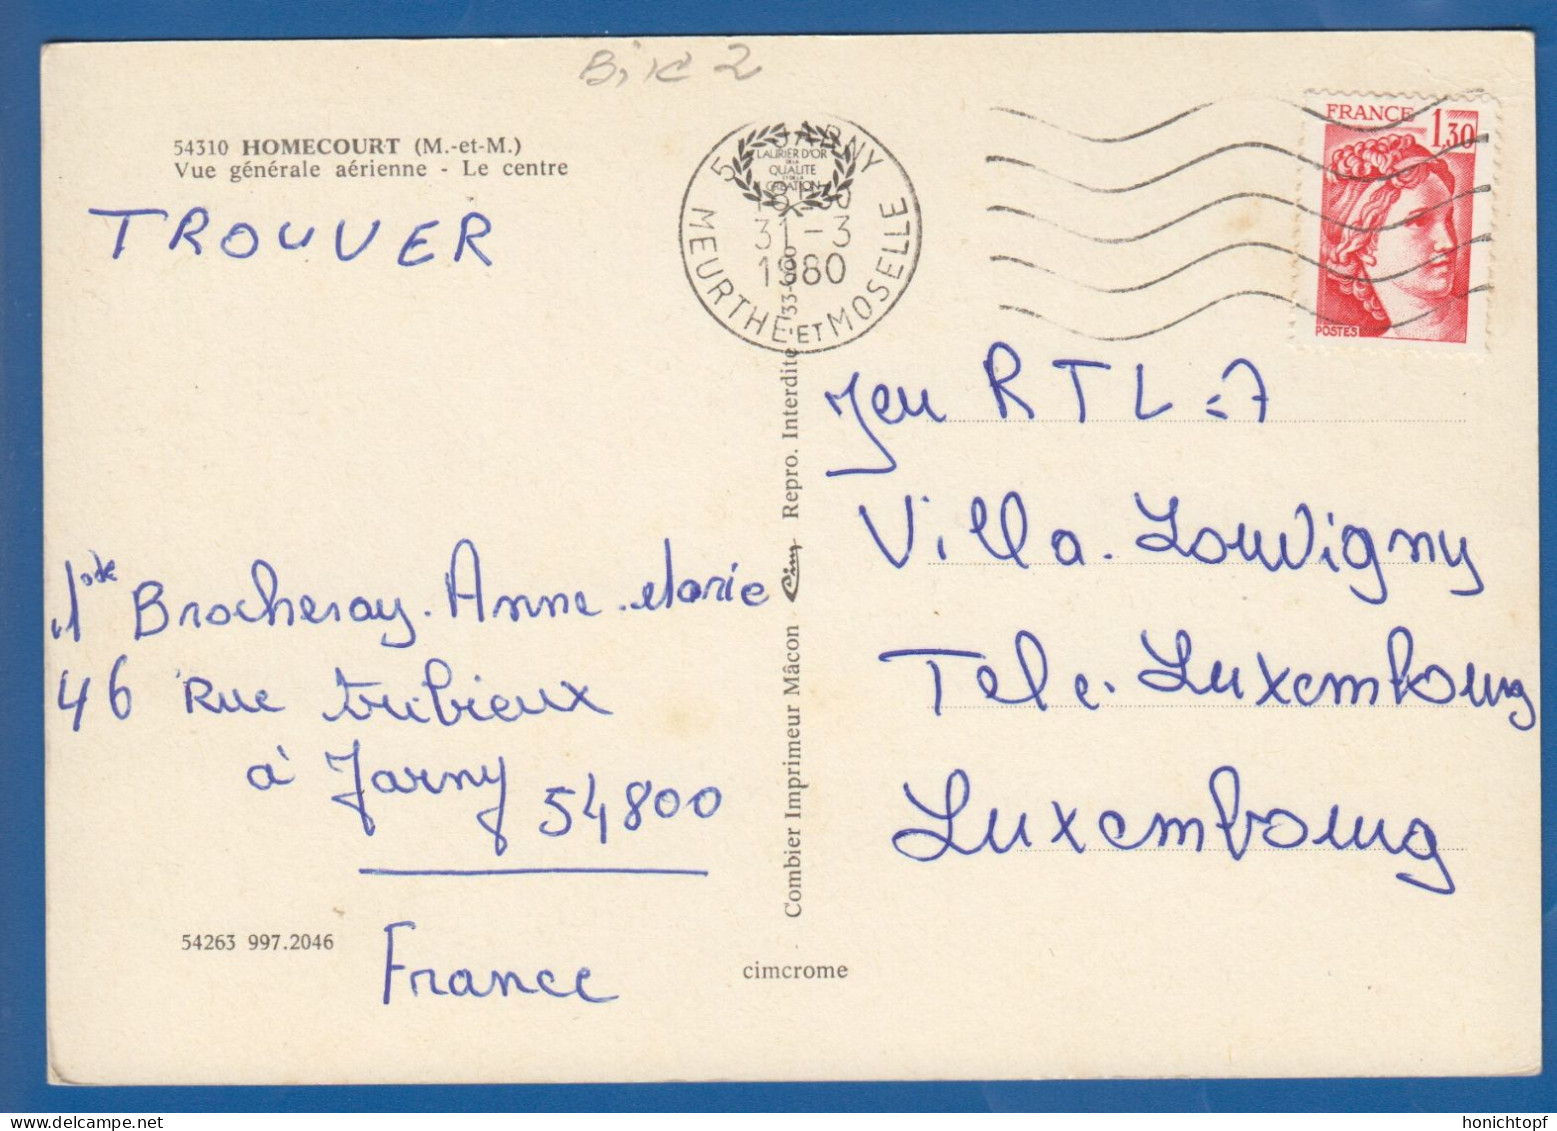 54310 HOMECOURT (M.-et-M.)
Vue générale aérienne - Le centre
TROUVER
JARNY
31-3
1980
MEURTHE-ET-MOSELLE
LAURIER D'OR
DE LA
QUALITE
ET DE LA
CREATION
FRANCE
1,30
POSTES
Jeu RTL-7
Villa Louvigny
Tele. Luxembourg
Luxembourg
Brocheray. Anne. Marie
46 Rue
à Jarny 54800
France
54263 997.2046
cimcrome
Combier Imprimeur Mâcon Cim Repro. Interdite
delcampe.net
honichtopf